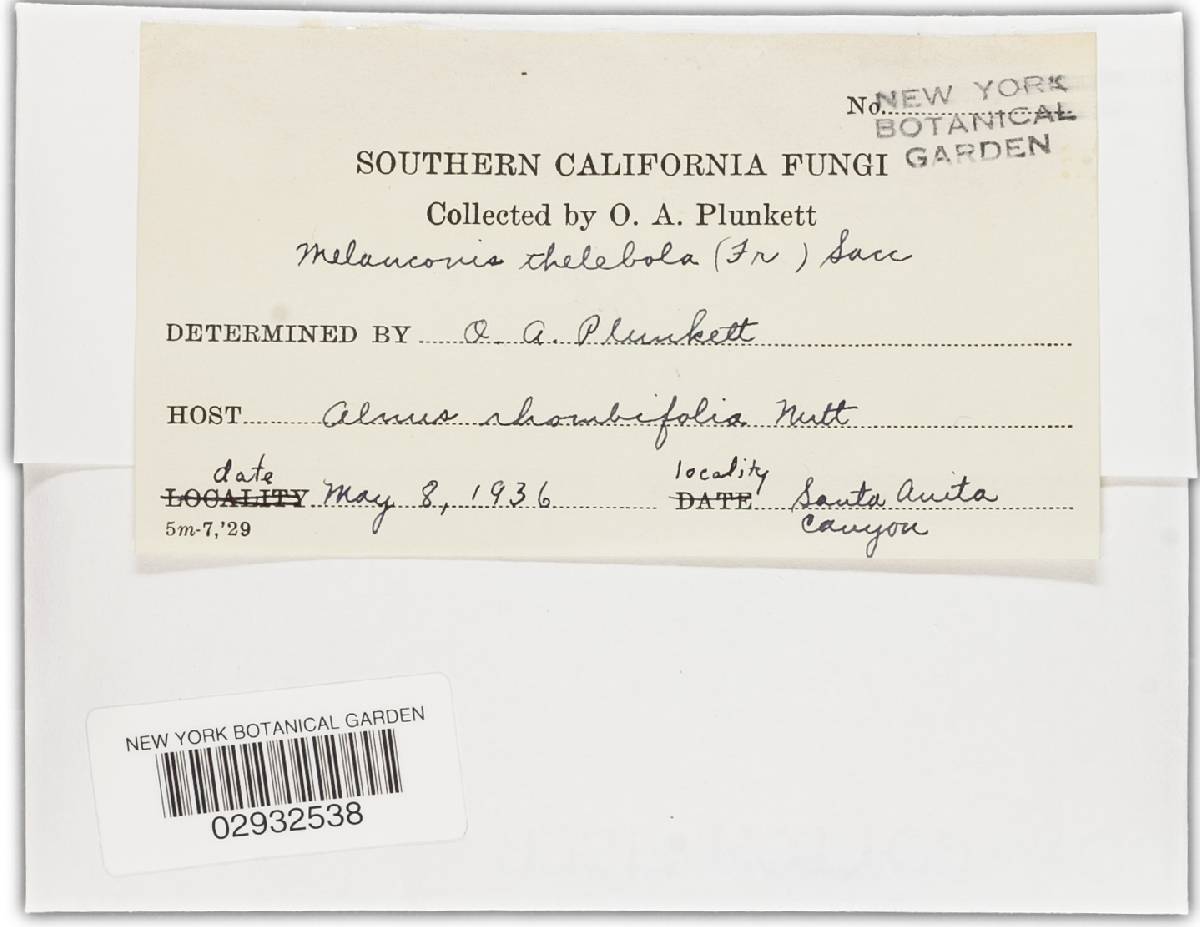 No.
NEW YORK
BOTANICAL
GARDEN
SOUTHERN CALIFORNIA FUNGI
Collected by O. A. Plunkett
Melanconis thelebola (Fr) Sacc
DETERMINED BY O. A. Plunkett
HOST Alnus rhombifolia Nutt
date locality
LOCALITY May 8, 1936 DATE Santa Anita
Canyon
5m-7,'29
NEW YORK BOTANICAL GARDEN
02932538